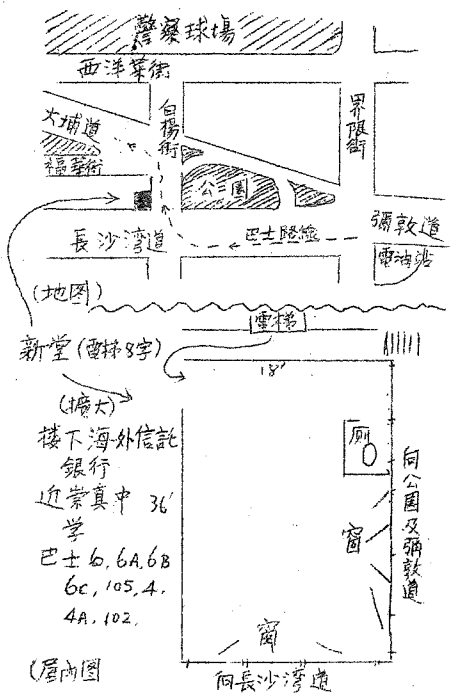 警察球場
西洋菜街
大埔道
白楊街
界限街
福華街
公三園
長沙灣道
巴士路線
彌敦道
電油站
(地图)
電梯
新堂(電梯8字)
18'
(擴大)
楼下海外信託
銀行
近崇真中
学
36'
巴士6,6A,6B
6C,105,4,
4A,102,
厠
窗
向公園及彌敦道
窗
(屋內图
向長沙灣道